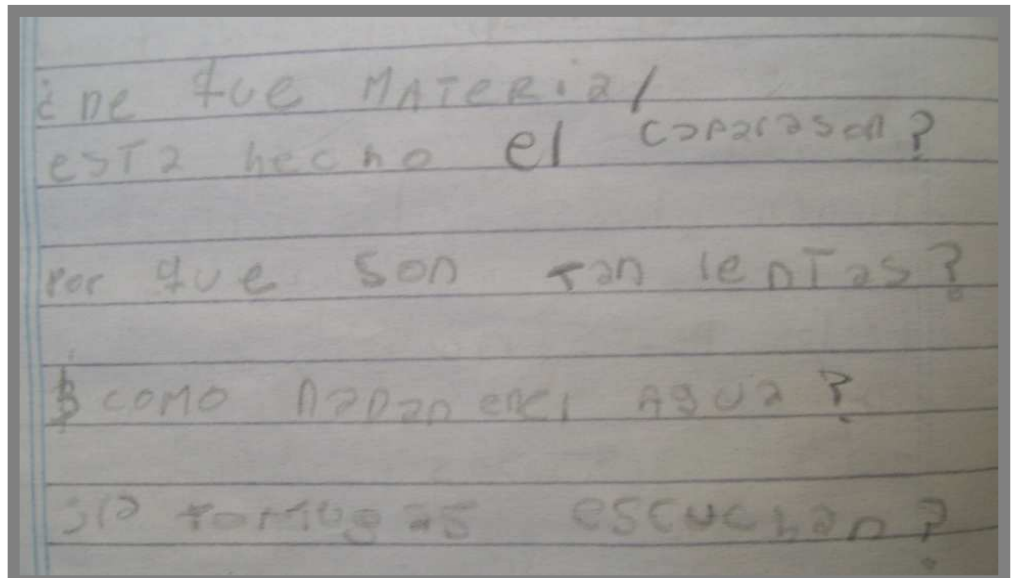 ¿ De que MATeRial
esTa hecho el caparason?
por que son Tan lenTas?
como nadan enel Agua?
tortugas escuchan?